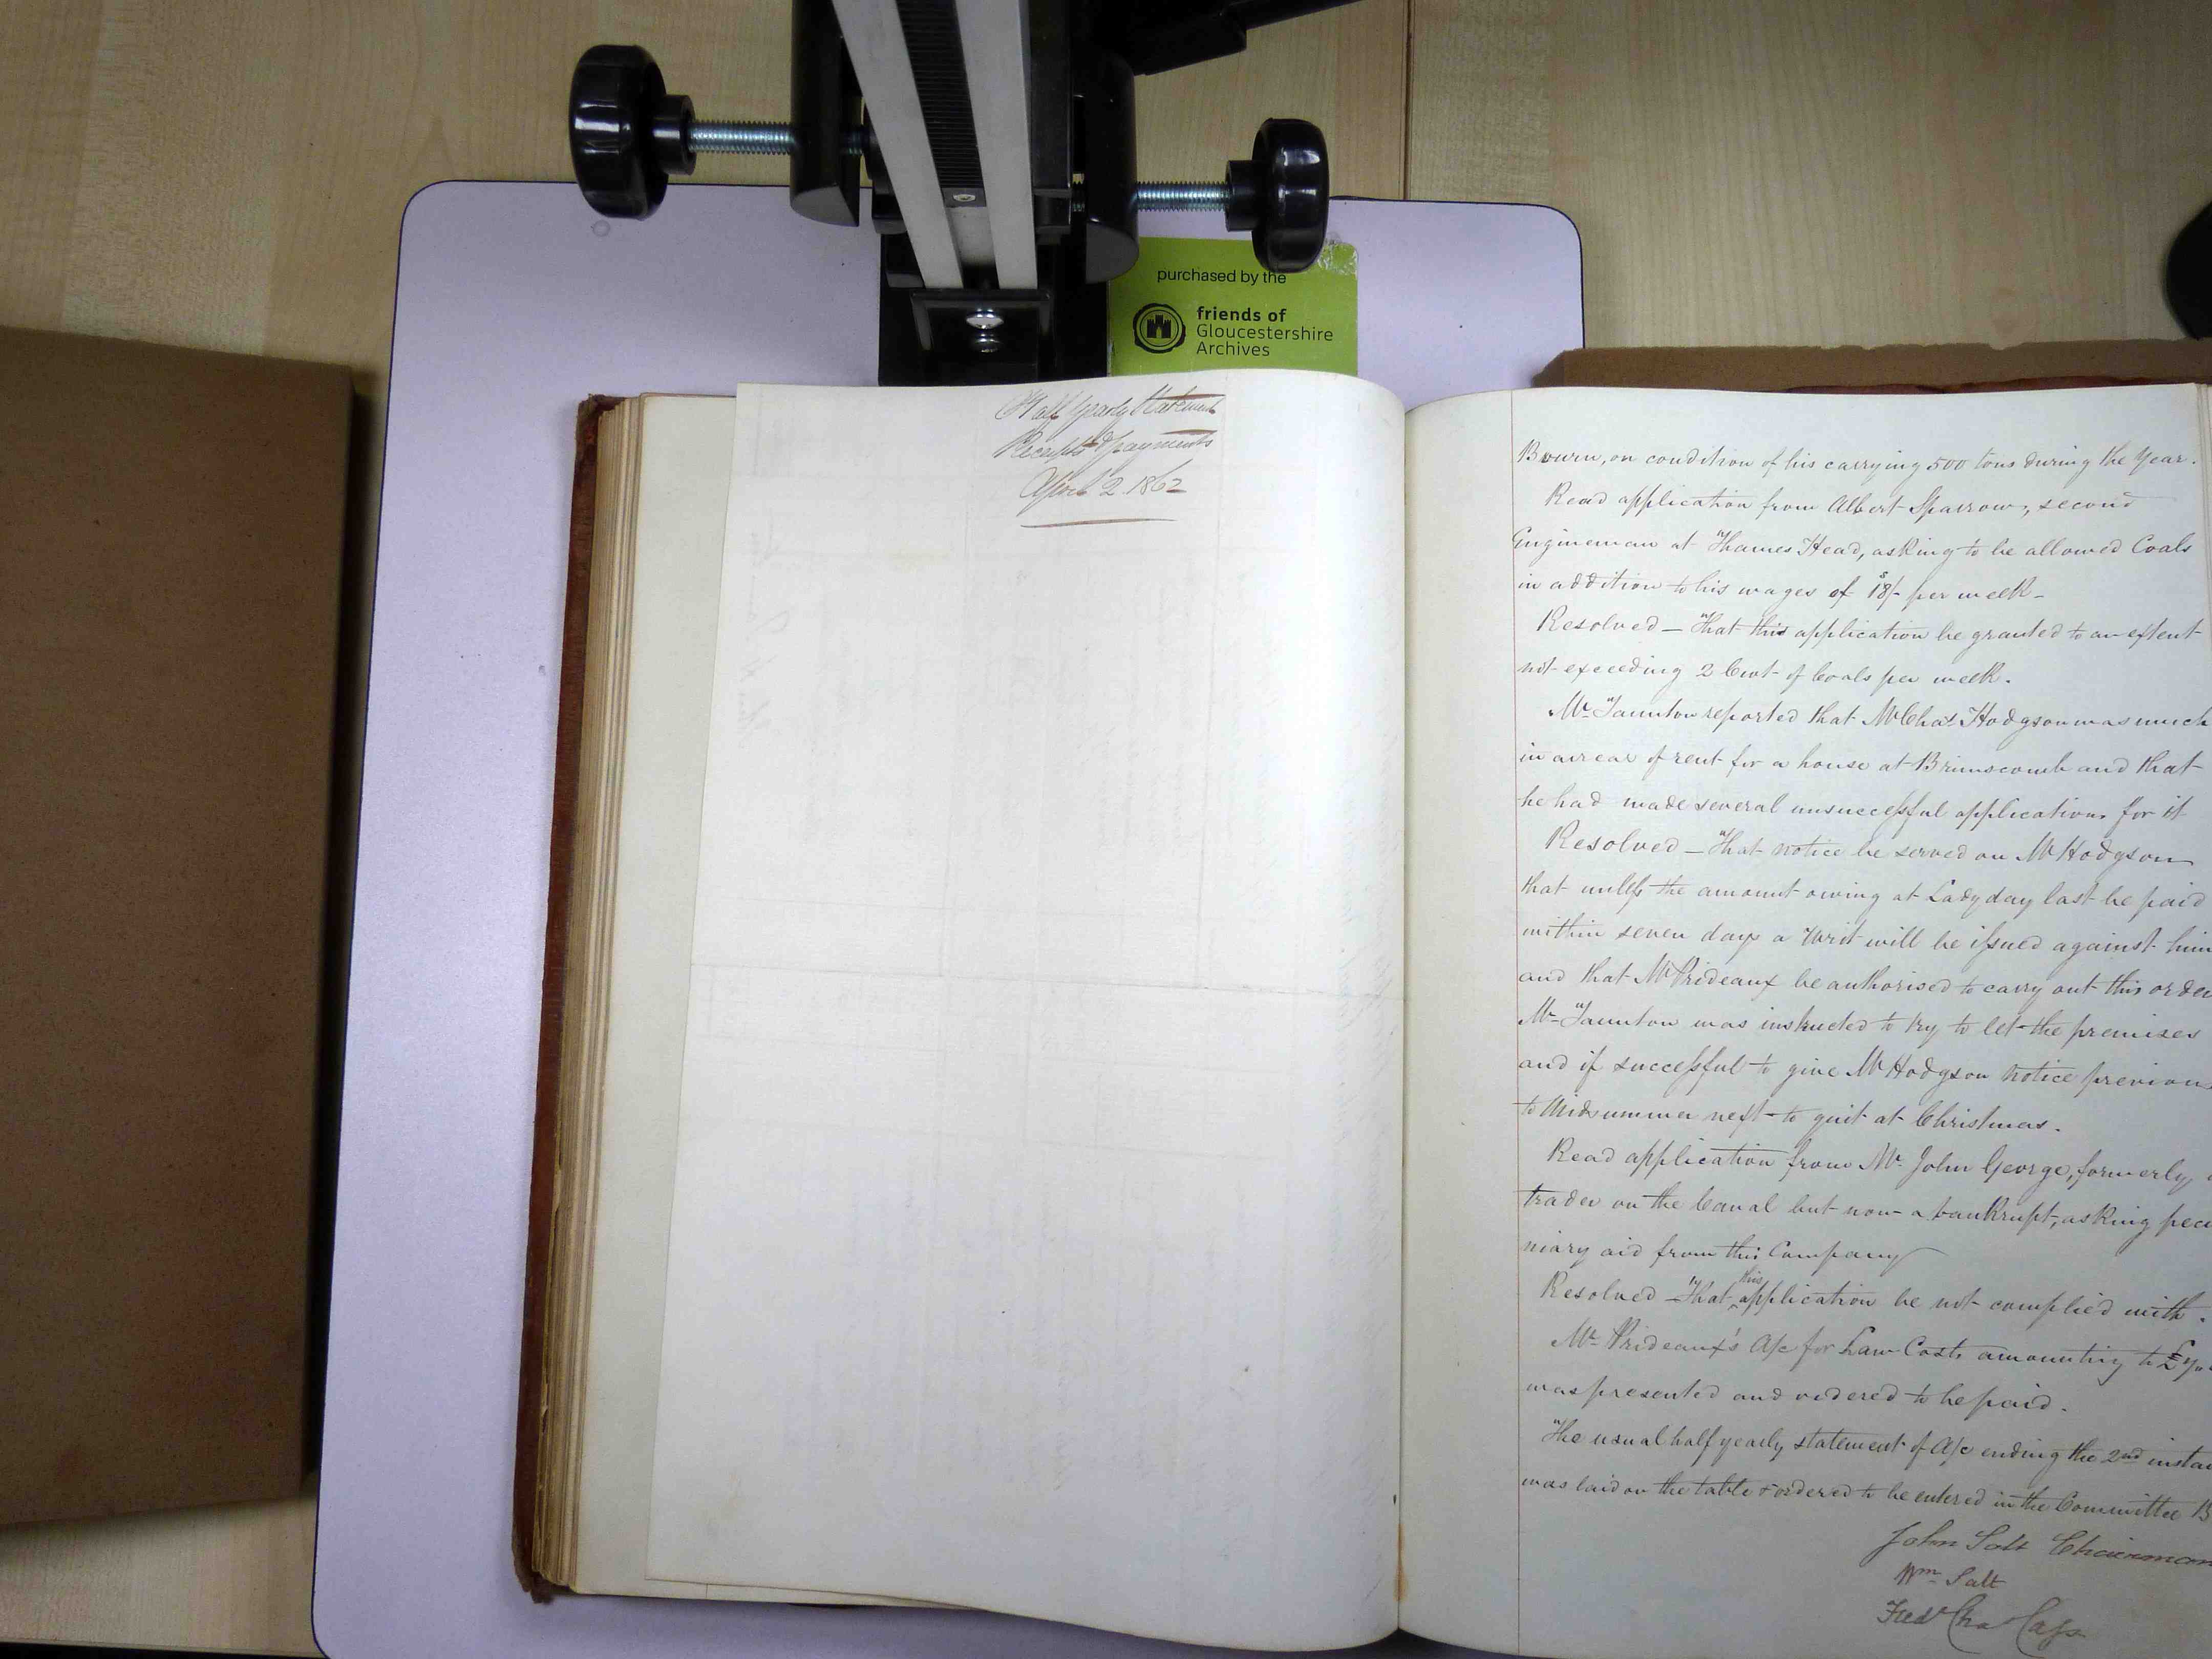 purchased by the
friends of
Gloucestershire
Archives
Half yearly Statement
Receipts & payments
April 2. 1862
Bourn, on condition of his carrying 500 tons during the Year.
Read application from Albert Sparrow, second
Engineman at Thames Head, asking to be allowed Coals
in addition to his wages of 18s/- per week -
Resolved — That this application be granted to an extent
not exceeding 2 Cwt of Coals per week.
Mr Taunton reported that Mr Chas Hodgson was much
in arrear of rent for a house at Brimscomb and that
he had made several unsuccessful applications for it
Resolved — That notice be served on Mr Hodgson
that unless the amount owing at Lady day last be paid
within seven days a Writ will be issued against him
and that Mr Prideaux be authorised to carry out this order
Mr Taunton was instructed to try to let the premises
and if successful to give Mr Hodgson notice previous
to Midsummer next to quit at Christmas.
Read application from Mr. John George, formerly
trader on the Canal but now a bankrupt, asking pecu
niary aid from this Company
Resolved — That this application be not complied with.
Mr Prideaux's A/c for Law Costs amounting to £
was presented and ordered to be paid.
The usual half yearly statement of A/c ending the 2nd instan
was laid on the table & ordered to be entered in the Committee B
John Salt Chairman
Wm Salt
Fredk Chas Cass